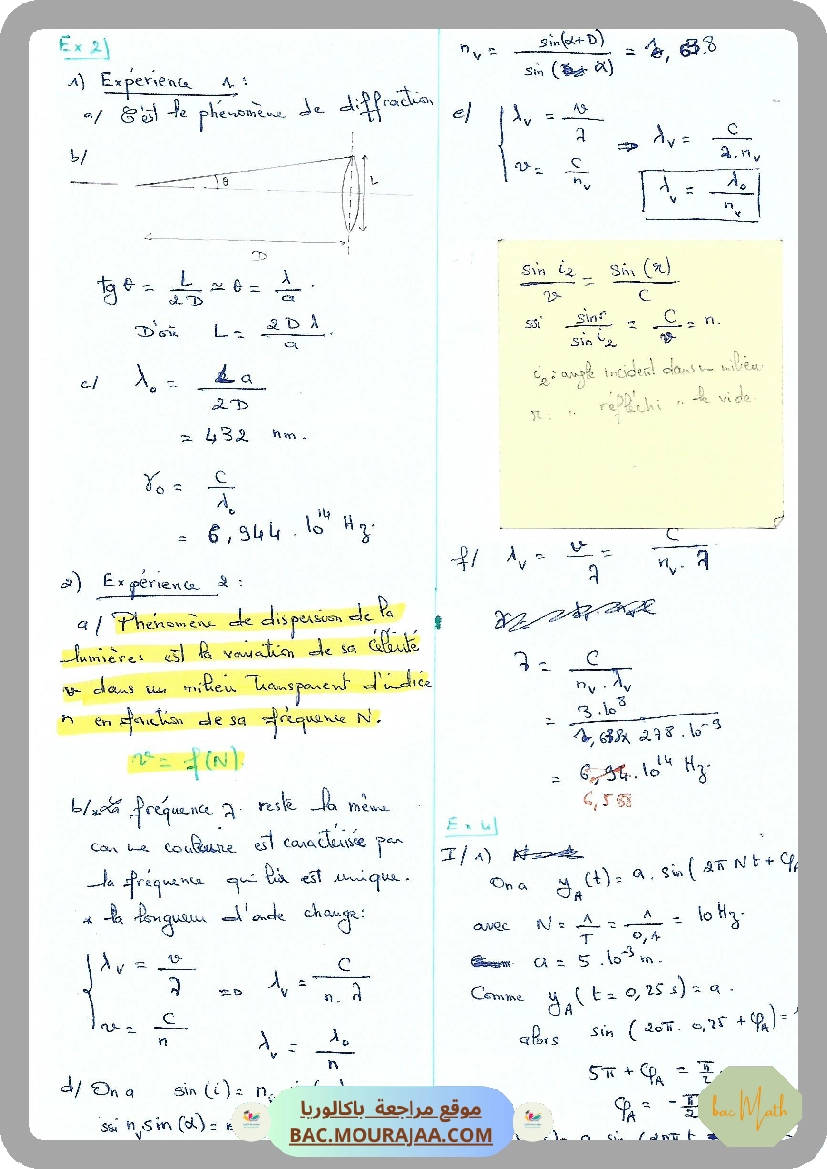 Ex 2)
1) Expérience 1 :
a/ C'est le phénomène de diffraction
b/
θ
L
D
tg θ = L/2D ≃ θ = λ/a .
D'où L = 2Dλ/a .
c/ λ₀ = La/2D
= 432 nm.
γ₀ = C/λ₀
= 6,944 . 10¹⁴ Hz.
2) Expérience 2 :
a/ Phénomène de dispersion de la
lumière: est la variation de sa célérité
v dans un milieu transparent d'indice
n en fonction de sa fréquence N.
v = f(N)
b/ * La fréquence λ reste la même
car une couleure est caractérisée par
la fréquence qui lui est unique.
* la longueur d'onde change:
λv = v/λ => λv = C/n.λ
v = C/n
λv = λ₀/n
d/ On a sin(i) =
ssi nv sin(α) =
nv = sin(α+D)/sin(α) = 1,638
e/ λv = v/λ => λv = C/λ.nv
v = C/nv
λv = λ₀/nv
sin i₂/v = sin(r)/C
ssi sin r/sin i₂ = C/v = n.
i₂: angle incident dans un milieu
r: " réfléchi " le vide
f/ λv = v/λ = C/nv.λ
λ = C/nv.λv
= 3.10⁸/1,638 x 278.10⁻⁹
= 6,94.10¹⁴ Hz.
6,588
Ex 4)
I/ 1)
On a yA(t) = a. sin(2π N t + φA
avec N = 1/T = 1/0,1 = 10 Hz.
a = 5.10⁻³ m.
Comme yA(t = 0,25 s) = a.
alors sin (20π. 0,25 + φA) =
5π + φA = π/2
φA = -π/2
bac Math
موقع مراجعة باكالوريا
BAC.MOURAJAA.COM